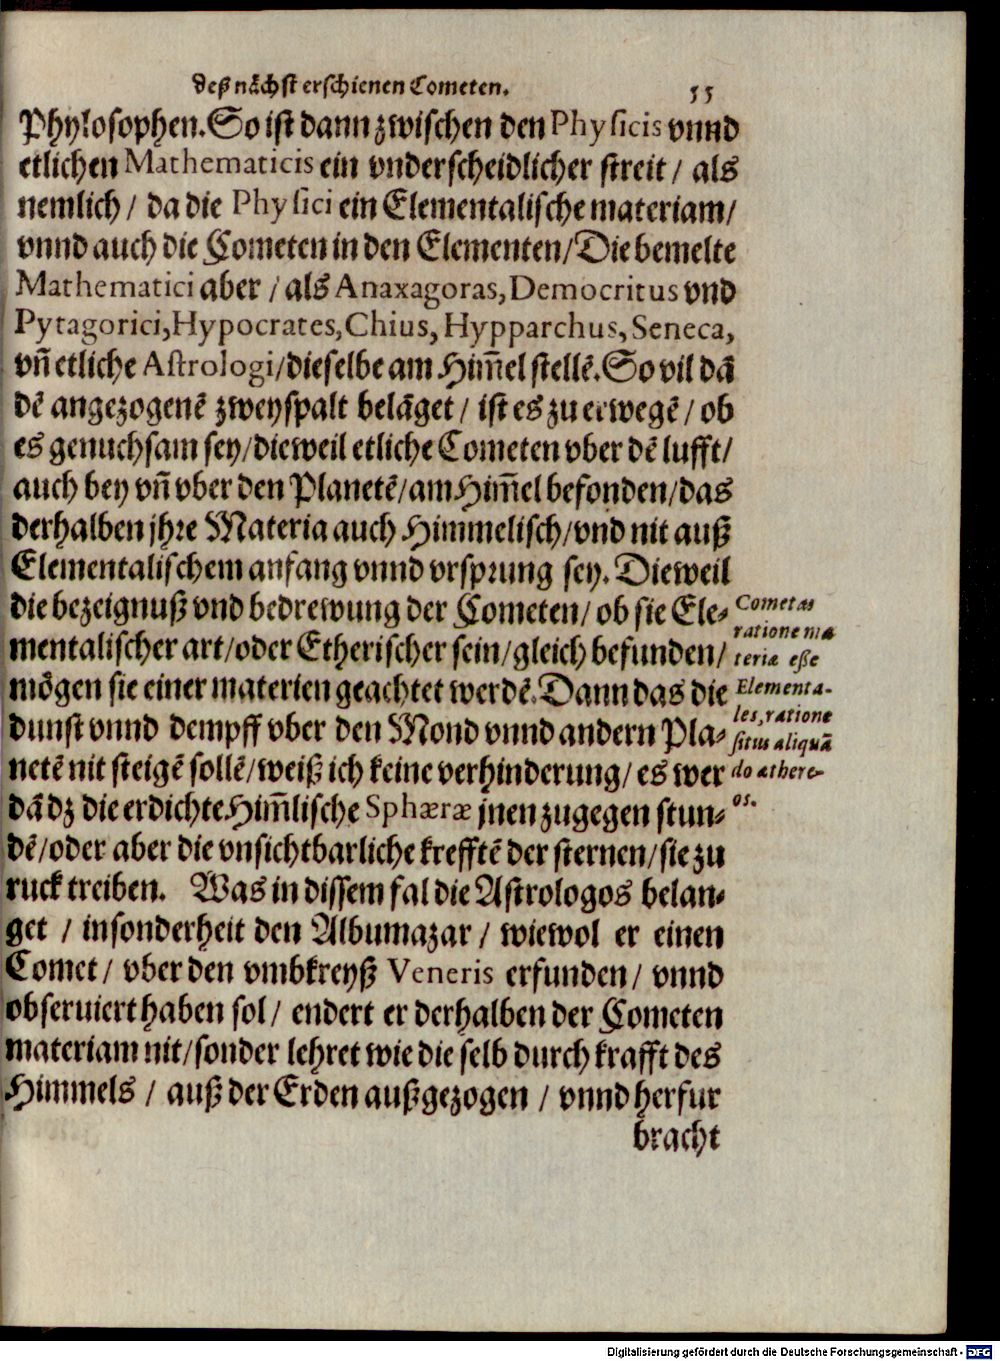 deß nächst erschienen Cometen. 55
Phylosophen. So ist dann zwischen den Physicis vnnd
etlichen Mathematicis ein vnderscheidlicher streit / als
nemlich / da die Physici ein Elementalische materiam /
vnnd auch die Cometen in den Elementen / Die bemelte
Mathematici aber / als Anaxagoras, Democritus vnd
Pytagorici, Hypocrates, Chius, Hypparchus, Seneca,
vñ etliche Astrologi / dieselbe am Him̃el stellẽ. So vil dã
dẽ angezogenẽ zweyspalt belãget / ist es zu erwegẽ / ob
es genuchsam sey / dieweil etliche Cometen vber dẽ lufft /
auch bey vñ vber den Planetẽ / am Him̃el befonden / das
derhalben jhre Materia auch Himmelisch / vnd nit auß
Elementalischem anfang vnnd vrsprung sey. Dieweil
die bezeignuß vnd bedrewung der Cometen / ob sie Ele-
mentalischer art / oder Etherischer sein / gleich befunden /
mögen sie einer materien geachtet werdẽ. Dann das die
dunst vnnd dempff vber den Mond vnnd andern Pla-
netẽ nit steigẽ sollẽ / weiß ich keine verhinderung / es wer
dã dz die erdichte Him̃lische Sphæræ jnen zugegen stun-
dẽ / oder aber die vnsichtbarliche krefftẽ der sternen / sie zu
ruck treiben. Was in dissem fal die Astrologos belan-
get / insonderheit den Albumazar / wiewol er einen
Comet / vber den vmbkreyß Veneris erfunden / vnnd
obseruiert haben sol / endert er derhalben der Cometen
materiam nit / sonder lehret wie die selb durch krafft des
Himmels / auß der Erden außgezogen / vnnd herfur
bracht
Cometas
ratione ma
teriæ eße
Elementa-
les, ratione
situs aliquã
do æthere-
os.
Digitalisierung gefördert durch die Deutsche Forschungsgemeinschaft - DFG